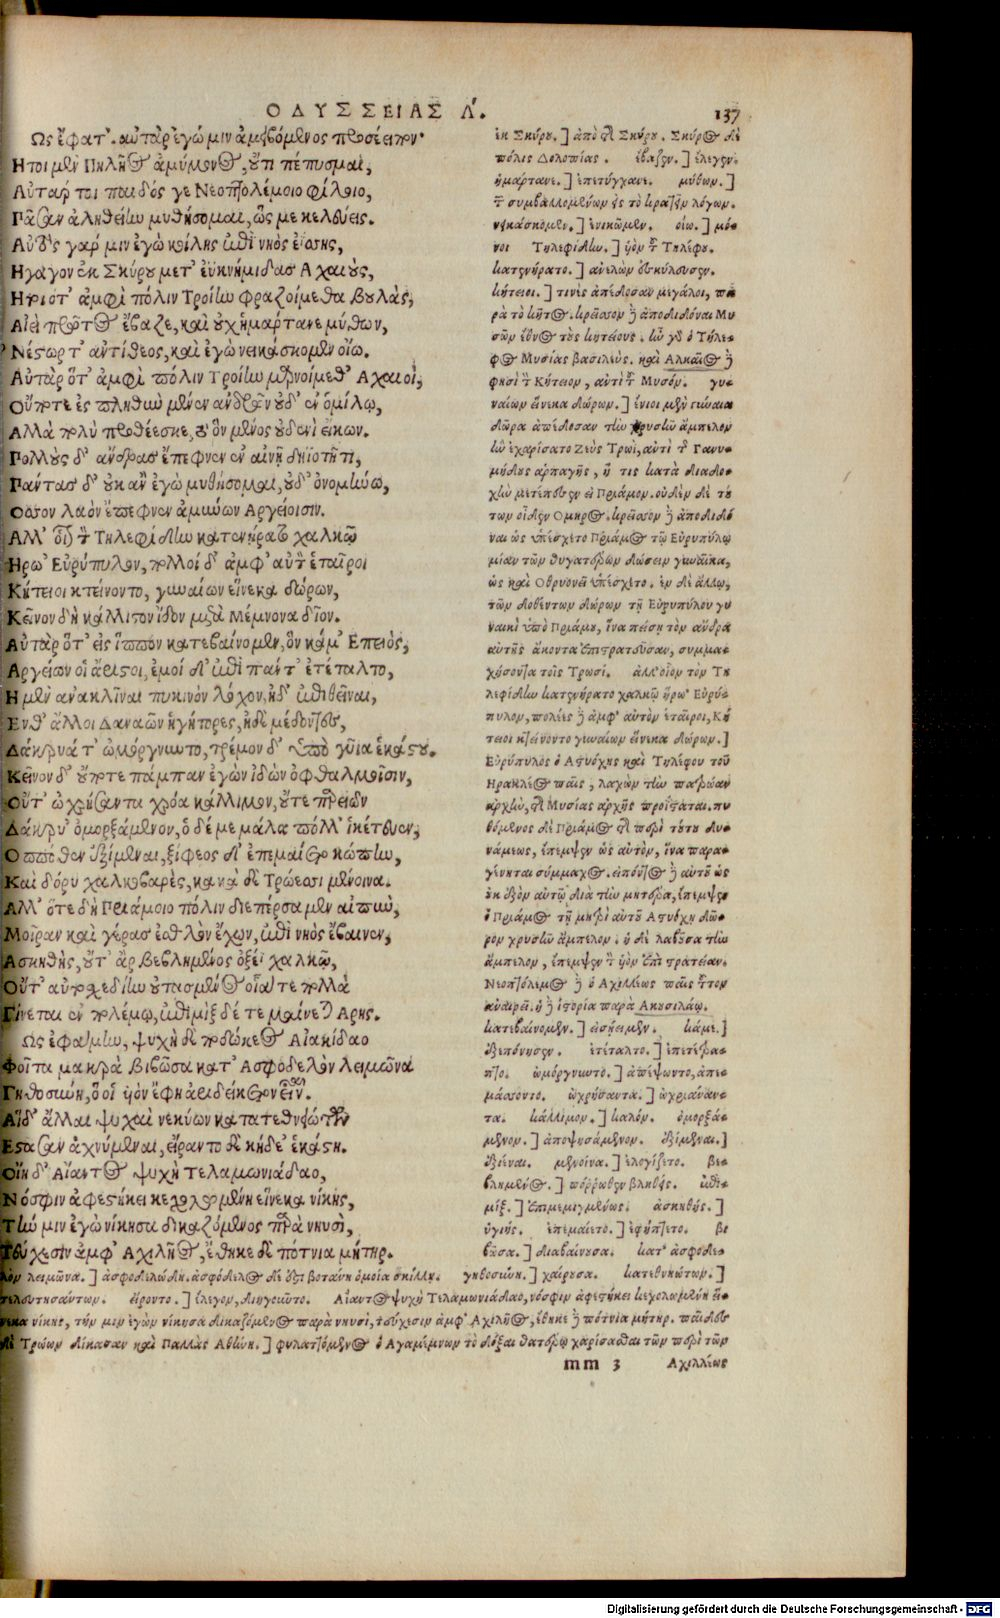 ΟΔΥΣΣΕΙΑΣ Λ΄. 137
Ως ἔφατ'. αὐτὰρ ἐγώ μιν ἀμειβόμενος προσέειπον·
Ητοι μὲν Πηλῆος ἀμύμονος, οὔτι πέπυσμαι,
Αὐτάρ τοι παιδός γε Νεοπτολέμοιο φίλοιο,
Πᾶσαν ἀληθείην μυθήσομαι, ὥς με κελεύεις.
Αὐτὸς γάρ μιν ἐγὼ κοίλης ἐπὶ νηὸς ἐΐσης,
Ηγαγον ἐκ Σκύρου μετ' ἐϋκνήμιδας Αχαιοὺς,
Ητοι ὅτ' ἀμφὶ πόλιν Τροίην φραζοίμεθα βουλὰς,
Αἰεὶ πρῶτος ἔβαζε, καὶ οὐχ ἡμάρτανε μύθων,
Νέστωρ τ' ἀντίθεος, καὶ ἐγὼ νεικάσκομεν οἴω.
Αὐτὰρ ὅτ' ἀμφὶ πόλιν Τροίην μαρνοίμεθ' Αχαιοὶ,
Οὔποτε ἐς πληθὺν μένεν ἀνδρῶν οὐδ' ἐν ὁμίλῳ,
Αλλὰ πολὺ προθέεσκε, τὸ ὃν μένος οὐδενὶ εἴκων.
Πολλοὺς δ' ἄνδρας ἔπεφνεν ἐν αἰνῇ δηϊοτῆτι,
Πάντας δ' οὐκ ἂν ἐγὼ μυθήσομαι, οὐδ' ὀνομήνω,
Οσσον λαὸν ἔπεφνεν ἀμύνων Αργείοισιν.
Αλλ' οἷον τὸν Τηλεφίδην κατενήρατο χαλκῷ
Ηρω' Εὐρύπυλον, πολλοὶ δ' ἀμφ' αὐτὸν ἑταῖροι
Κήτειοι κτείνοντο, γυναίων εἵνεκα δώρων,
Κεῖνον δὴ κάλλιστον ἴδον μετὰ Μέμνονα δῖον.
Αὐτὰρ ὅτ' εἰς ἵππον κατεβαίνομεν, ὃν κάμ' Επειὸς,
Αργείων οἱ ἄριστοι, ἐμοὶ δ' ἐπὶ πάντ' ἐτέταλτο,
Η μὲν ἀνακλῖναι πυκινὸν λόχον, ἠδ' ἐπιθεῖναι,
Ενθ' ἄλλοι Δαναῶν ἡγήτορες, ἠδὲ μέδοντες,
Δάκρυά τ' ὠμόργνυντο, τρέμον δ' ὑπὸ γυῖα ἑκάστου.
Κεῖνον δ' οὔποτε πάμπαν ἐγὼν ἰδὼν ὀφθαλμοῖσιν,
Οὔτ' ὠχρήσαντα χρόα κάλλιμον, οὔτε παρειῶν
Δάκρυ' ὀμορξάμενον, ὁ δέ με μάλα πόλλ' ἱκέτευεν,
Ιππόθεν ἐξίμεναι, ξίφεος δ' ἐπεμαίετο κώπην,
Καὶ δόρυ χαλκοβαρὲς, κακὰ δὲ Τρώεσσι μενοίνα.
Αλλ' ὅτε δὴ Πριάμοιο πόλιν διεπέρσαμεν αἰπὴν,
Μοῖραν καὶ γέρας ἐσθλὸν ἔχων, ἐπὶ νηὸς ἔβαινεν,
Ασκηθὴς, οὔτ' ἂρ βεβλημένος ὀξέϊ χαλκῷ,
Οὔτ' αὐτοσχεδίην οὐτασμένος, οἷά τε πολλὰ
Γίνεται ἐν πολέμῳ, ἐπιμὶξ δέ τε μαίνεται Αρης.
Ως ἐφάμην, ψυχὴ δὲ ποδώκεος Αἰακίδαο
Φοῖτα μακρὰ βιβῶσα κατ' Ασφόδελον λειμῶνα
Γηθοσύνη, ὅ οἱ υἱὸν ἔφην ἀριδείκετον εἶναι.
Αἱ δ' ἄλλαι ψυχαὶ νεκύων κατατεθνηώτων
Εστασαν ἀχνύμεναι, εἴροντο δὲ κήδε' ἑκάστη.
Οἴη δ' Αἴαντος ψυχὴ Τελαμωνιάδαο,
Νόσφιν ἀφεστήκει κεχολωμένη εἵνεκα νίκης,
Τήν μιν ἐγὼ νίκησα δικαζόμενος παρὰ νηυσὶ,
Τεύχεσιν ἀμφ' Αχιλῆος, ἔθηκε δὲ πότνια μήτηρ.
ἐκ Σκύρου.] ἀπὸ τῆς Σκύρου. Σκῦρος δὲ
πόλις Δολοπίας. ἔβαζεν.] ἔλεγεν.
ἡμάρτανε.] ἐπετύγχανε. μύθων.]
τῶν συμβαλλομένων ἐς τὸ κράζειν λόγων.
νεικάσκομεν.] ἐνικῶμεν. οἴω.] μό-
νοι Τηλεφίδην.] υἱὸν τοῦ Τηλέφου.
κατενήρατο.] ἀνελὼν ἐσκύλευσεν.
κήτειοι.] τινὲς ἀπέδοσαν μεγάλοι, πα-
ρὰ τὸ κῆτος. κρεῖσσον δὲ ἀποδιδόναι Μυ
σῶν ἔθνος τοὺς κητείους. ἦν γὰρ ὁ Τήλε-
φος Μυσίας βασιλεὺς. καὶ Αλκαῖος δὲ
φησὶ τὸν Κήτειον, ἀντὶ τοῦ Μυσόν. γυ-
ναίων εἵνεκα δώρων.] ἔνιοι μὲν γυναῖα
δῶρα ἀπέδοσαν τὴν χρυσῆν ἄμπελον
ἣν ἐχαρίσατο Ζεὺς Τρωῒ, ἀντὶ τῆς Γανυ-
μήδους ἁρπαγῆς, ἥ τις κατὰ διαδο-
χὴν μετέπεσεν εἰς Πρίαμον. οὐδὲν δὲ τού
των οἶδεν Ομηρος. κρεῖσσον δὲ ἀποδιδό
ναι ὡς ὑπέσχετο Πρίαμος τῷ Εὐρυπύλῳ
μίαν τῶν θυγατέρων δώσειν γυναῖκα,
ὡς καὶ Οθρυονεῖ ὑπέσχετο. ἐν δὲ ἄλλῳ,
τῶν δοθέντων δώρων τῇ Εὐρυπύλου γυ
ναικὶ ὑπὸ Πριάμου, ἵνα πείσῃ τὸν ἄνδρα
αὐτῆς ἄκοντα ἐπιστρατεῦσαι, συμμα-
χήσοντα τοῖς Τρωσί. ἀλλ' οἷον τὸν Τη
λεφίδην κατενήρατο χαλκῷ ἥρω' Εὐρύ-
πυλον, πολέες δ' ἀμφ' αὐτὸν ἑταῖροι, Κή
τειοι κτείνοντο γυναίων εἵνεκα δώρων.]
Εὐρύπυλος ὁ Αστυόχης καὶ Τηλέφου τοῦ
Ηρακλέος παῖς, λαχὼν τὴν πατρῴαν
ἀρχὴν, τῆς Μυσίας ἀρχῆς προΐσταται. πυ
θόμενος δὲ Πρίαμος τῆς περὶ τούτου δυ-
νάμεως, ἔπεμψεν ὡς αὐτὸν, ἵνα παρα-
γένηται σύμμαχος. εἰπόντος δὲ αὐτοῦ ὡς
οὐκ ἐξὸν αὐτῷ διὰ τὴν μητέρα, ἔπεμψεν
ὁ Πρίαμος τῇ μητρὶ αὐτοῦ Αστυόχῃ δῶ-
ρον χρυσῆν ἄμπελον. ἡ δὲ λαβοῦσα τὴν
ἄμπελον, ἔπεμψεν τὸν υἱὸν ἐπὶ στρατείαν.
Νεοπτόλεμος δὲ ὁ Αχιλλέως παῖς τοῦτον
ἀναιρεῖ. ἡ δὲ ἱστορία παρὰ Ακουσιλάῳ.
κατεβαίνομεν.] εἰσῄειμεν. κάμε.]
ἐξεπόνησεν. ἐτέταλτο.] ἐπετέτρα-
πτο. ὠμόργνυντο.] ἀπέψωντο, ἀπε-
μάσσοντο. ὠχρήσαντα.] ὠχριάναν-
τα. κάλλιμον.] καλόν. ὀμορξά-
μενον.] ἀποψησάμενον. ἐξίμεναι.]
ἐξιέναι. μενοίνα.] ἐλογίζετο. βε-
βλημένος.] πόρρωθεν βληθείς. ἐπι-
μίξ.] ἐπιμεμιγμένως. ἀσκηθής.]
ὑγιής. ἐπεμαίετο.] ἐφήπτετο. βι
βῶσα.] διαβαίνουσα. κατ' ἀσφοδε-
λὸν λειμῶνα.] ἀσφοδελώδη. ἀσφόδελος δὲ ἐστι βοτάνη ὁμοία σκίλλῃ. γηθοσύνη.] χαίρουσα. κατεθνηώτων.]
τελευτησάντων. εἴροντο.] ἔλεγον, διηγοῦντο. Αἴαντος ψυχὴ Τελαμωνιάδαο, νόσφιν ἀφεστήκει κεχολωμένη εἵ-
νεκα νίκης, τήν μιν ἐγὼν νίκησα δικαζόμενος παρὰ νηυσὶ, τεύχεσιν ἀμφ' Αχιλῆος, ἔθηκε δὲ πότνια μήτηρ. παῖδες
δὲ Τρώων δίκασαν καὶ Παλλὰς Αθήνη.] φυλαττόμενος ὁ Αγαμέμνων τὸ δόξαι θατέρῳ χαρίσασθαι τῶν περὶ τῶν
mm 3 Αχιλλέως
Digitalisierung gefördert durch die Deutsche Forschungsgemeinschaft - DFG